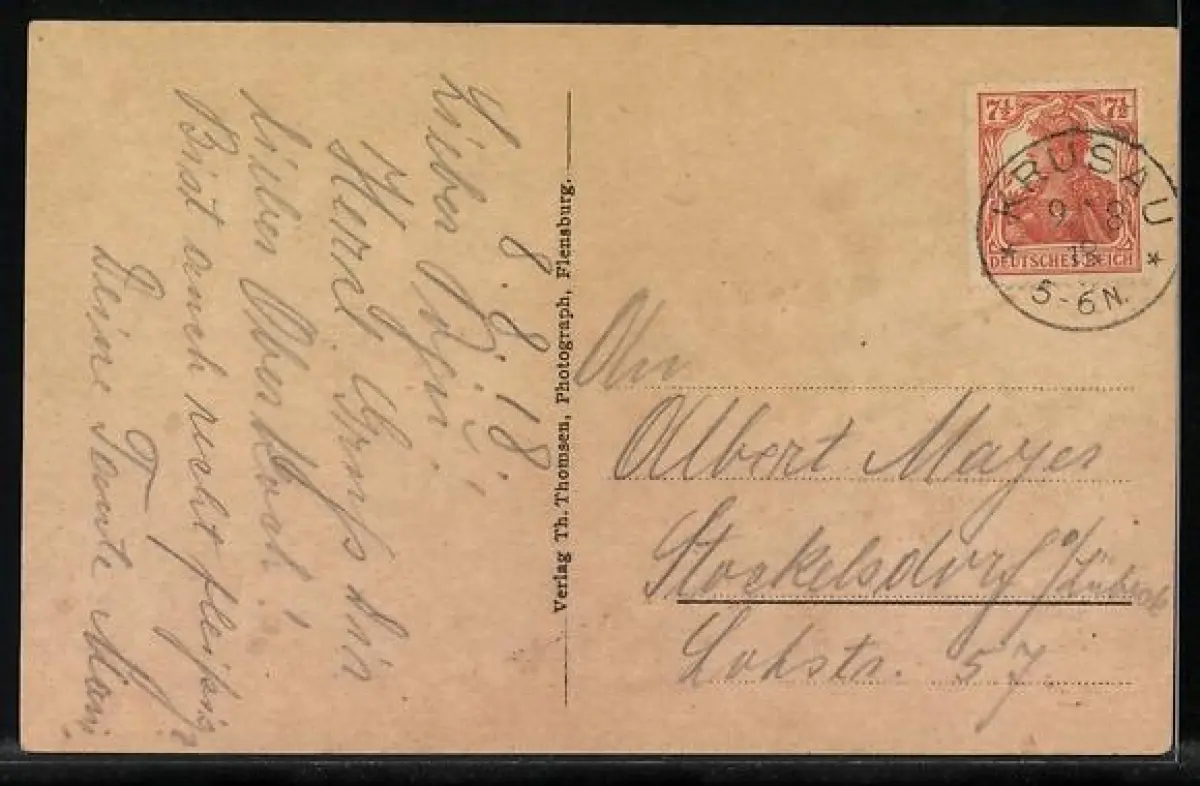 8.8.18.
Lieber
Herzl. Gruß Dir
lieber
Bist auch recht fleißig?
Deine Tante
Verlag Th. Thomsen, Photograph, Flensburg.
7½ 7½
DEUTSCHES REICH
KRUSAU
9 8
18
5-6 N.
An
Albert Mayer
Stockelsdorf b/Lübeck
Lohstr. 57.